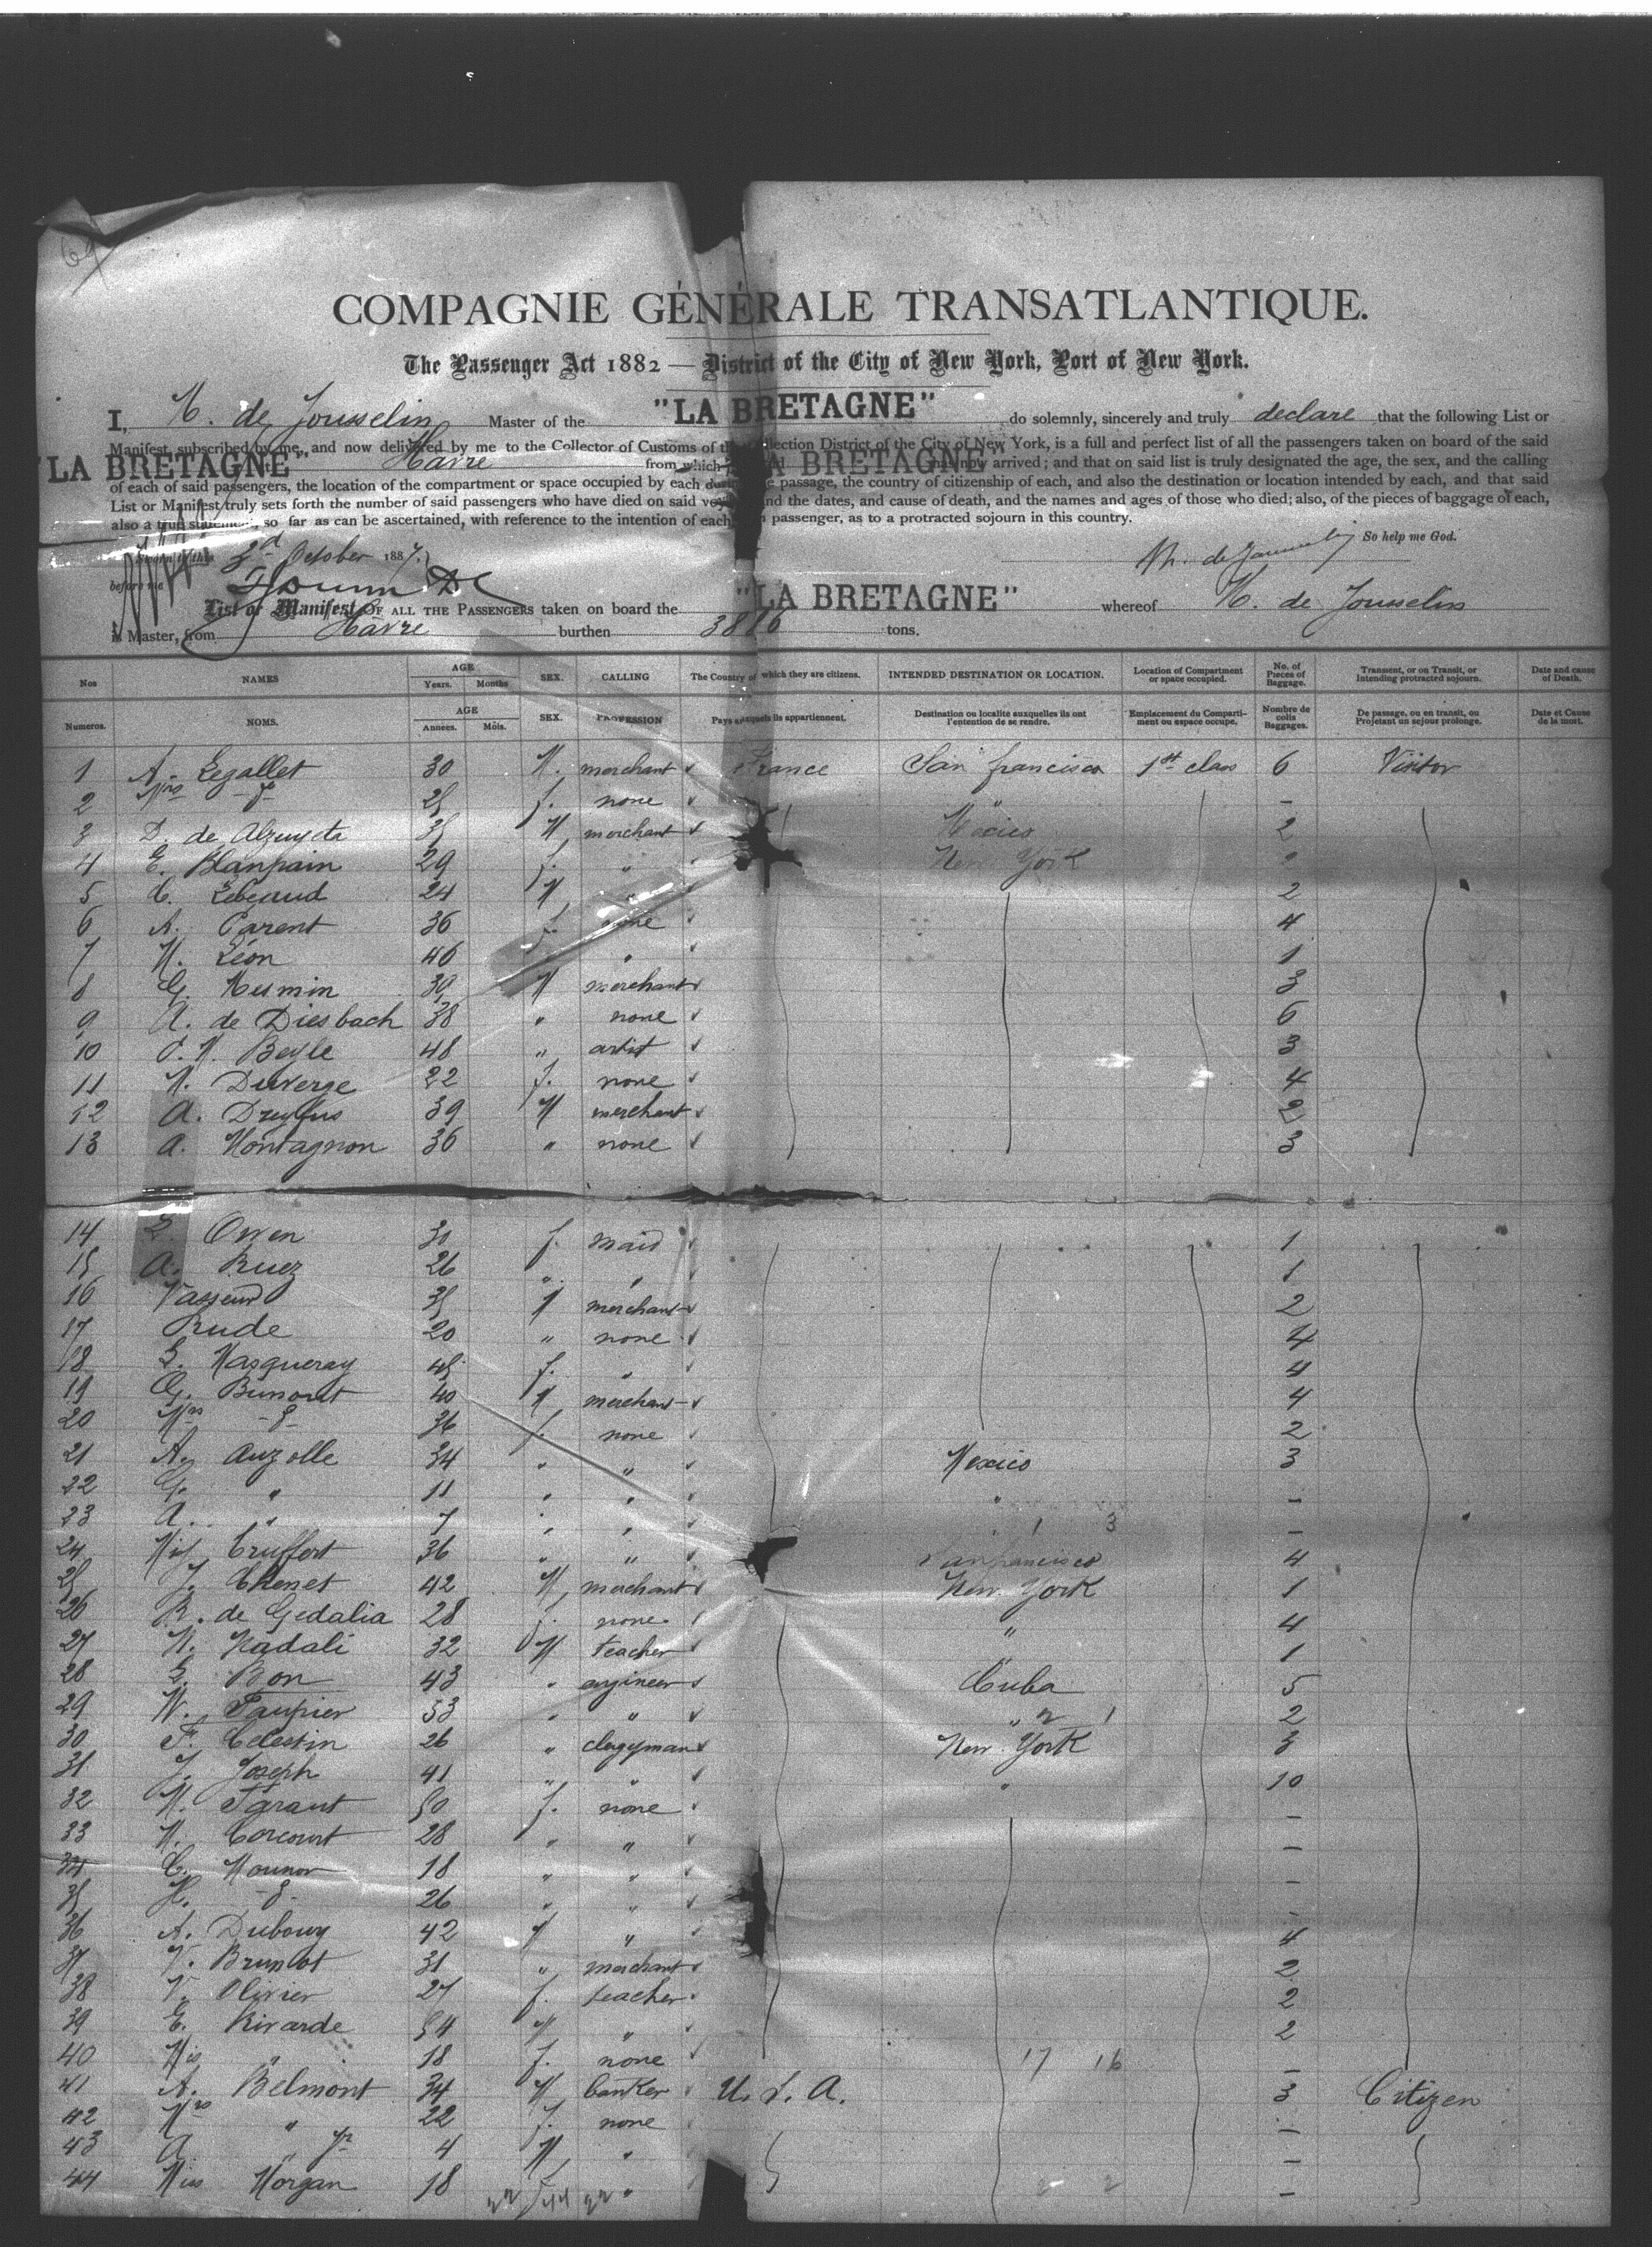 COMPAGNIE GÉNÉRALE TRANSATLANTIQUE.
The Passenger Act 1882 — District of the City of New York, Port of New York.
I, de Jousselin Master of the "LA BRETAGNE" do solemnly, sincerely and truly declare that the following List or
Manifest, subscribed by me, and now delivered by me to the Collector of Customs of the Collection District of the City of New York, is a full and perfect list of all the passengers taken on board of the said
"LA BRETAGNE" Havre from which "LA BRETAGNE" now arrived; and that on said list is truly designated the age, the sex, and the calling
of each of said passengers, the location of the compartment or space occupied by each during the passage, the country of citizenship of each, and also the destination or location intended by each, and that said
List or Manifest truly sets forth the number of said passengers who have died on said voyage and the dates, and cause of death, and the names and ages of those who died; also, of the pieces of baggage of each,
also a true statement, so far as can be ascertained, with reference to the intention of each passenger, as to a protracted sojourn in this country.
So help me God.
Sworn to this 3d October 1887.
before me
List or Manifest OF ALL THE PASSENGERS taken on board the "LA BRETAGNE" whereof de Jousselin
is Master, from Havre burthen tons.
Nos NAMES AGE Years. Months SEX. CALLING The Country of which they are citizens. INTENDED DESTINATION OR LOCATION. Location of Compartment or space occupied. No. of Pieces of Baggage. Transient, or on Transit, or Intending protracted sojourn. Date and cause of Death.
Numeros. NOMS. AGE Années. Mois. SEX. PROFESSION Pays auxquels ils appartiennent. Destination ou localite auxquelles ils ont l'entention de se rendre. Emplacement du Compartiment ou espace occupe. Nombre de colis Baggages. De passage, ou en transit, ou Projetant un sejous prolonge. Date et Cause de la mort.
1 A. Legallet 30 M. merchant France San francisco 1st class 6 Visitor
2 Mrs 25 f. none " -
3 D. de 35 M merchant Mexico 2
4 E. Blanpain 29 f. " New York
5 Lebeaud 24 M " 2
6 A. Parent 36 f. none 4
7 M. Léon 46 " 1
8 G. Mesmin 30 M merchant 3
9 A. de Diesbach 38 " none 6
10 Beyle 48 " artist 3
11 M. Duverge 22 f. none 4
12 A. Dreyfus 39 M merchant 2
13 A. Montagnon 36 " none 3
14 Owen 30 f. maid 1
15 A. Ruez 26 " " 1
16 Vasseur 35 M merchant 2
17 Rude 20 " none 4
18 Masqueray 45 f. " 4
19 G. 40 M merchant 4
20 Mrs 36 f. none 2
21 A. Auzolle 34 " " Mexico 3
22 G. " 11 " " " -
23 A. " 7 " " " -
24 Truffert 36 " " San francisco 4
25 J. Chenet 42 M merchant New York 1
26 R. de Gedalia 28 f. none " 4
27 Nadali 32 M teacher " 1
28 Bon 43 " engineer Cuba 5
29 53 " " " 2
30 F. Celestin 26 " clergyman New York 3
31 J. Joseph 41 " " " 10
32 M. 50 f. none -
33 M. 28 " " -
34 C. 18 " " -
35 26 " " -
36 A. Dubourg 42 M " 4
37 V. 31 " merchant 2
38 V. Olivier 27 f. teacher 2
39 E. Rivarde 54 M " 2
40 Mis " 18 f. none -
41 A. Belmont 34 M banker U. S. A. 3 Citizen
42 Mrs " 22 f. none -
43 A. " Jr 4 M " -
44 Miss Morgan 18 f. " -